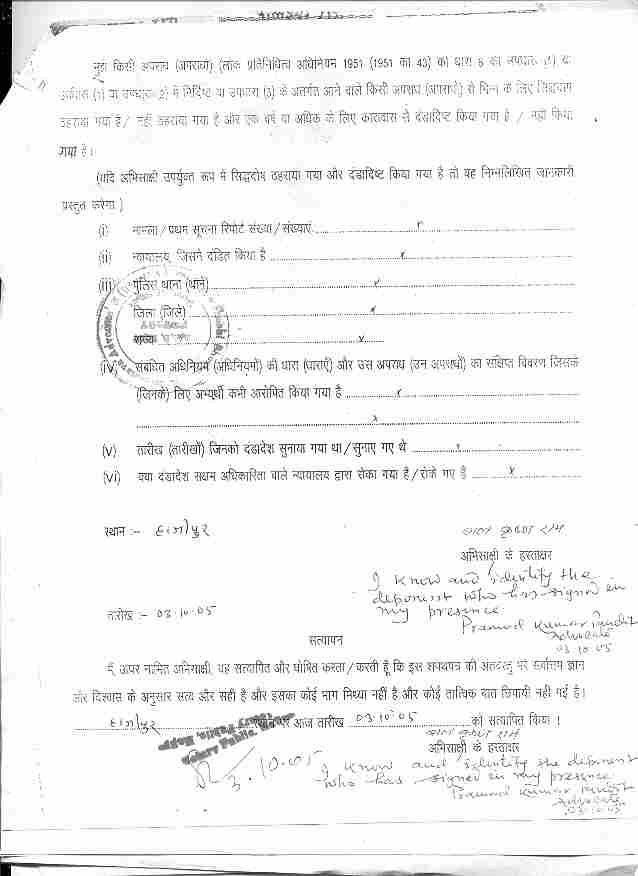 मुझे किसी अपराध (अपराधों) (लोक प्रतिनिधित्व अधिनियम 1951 (1951 का 43) की धारा 8 की उपधारा (1) या
उपधारा (1) या उपधारा (2) में निर्दिष्ट या उपधारा (3) के अंतर्गत आने वाले किसी अपराध (अपराधों) से भिन्न के लिए सिद्धदोष
ठहराया गया है / नहीं ठहराया गया है और एक वर्ष या अधिक के लिए कारावास से दंडादिष्ट किया गया है / नहीं किया
गया है।
(यदि अभिसाक्षी उपर्युक्त रूप में सिद्धदोष ठहराया गया और दंडादिष्ट किया गया है तो यह निम्नलिखित जानकारी
प्रस्तुत करेगा )
(i) मामला / प्रथम सूचना रिपोर्ट संख्या / संख्याएं x
(ii) न्यायालय, जिसने दंडित किया है x
(iii) पुलिस थाना (थाने) x
जिला (जिले) x
राज्य x
(iv) संबंधित अधिनियम (अधिनियमों) की धारा (धाराएँ) और उस अपराध (उन अपराधों) का संक्षिप्त विवरण जिसके
(जिनके) लिए अभ्यर्थी कभी आरोपित किया गया है x
x
(v) तारीख (तारीखों) जिनको दंडादेश सुनाया गया था / सुनाए गए थे x
(vi) क्या दंडादेश सक्षम अधिकारिता वाले न्यायालय द्वारा रोका गया है / रोके गए है x
स्थान :- हाजीपुर
बाल कृष्ण राम
अभिसाक्षी के हस्ताक्षर
I know and identify the
deponent who has signed in
my presence
Pramod Kumar Pandit
Advocate
03.10.05
तारीख :- 03.10.05
सत्यापन
मैं ऊपर नामित अभिसाक्षी, यह सत्यापित और घोषित करता / करती हूँ कि इस शपथपत्र की अंतर्वस्तु मेरे सर्वोत्तम ज्ञान
और विश्वास के अनुसार सत्य और सही है और इसका कोई भाग मिथ्या नहीं है और कोई तात्विक बात छिपायी नहीं गई है।
हाजीपुर पर आज तारीख 03.10.05 को सत्यापित किया !
बाल कृष्ण राम
अभिसाक्षी के हस्ताक्षर
Notary Public
3.10.05
I know and identify the deponent
who has signed in my presence
Pramod Kumar Pandit
Advocate
03.10.05